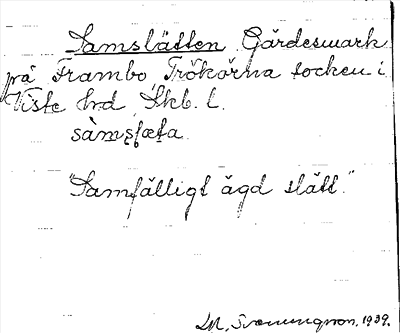 Samslätten Gärdesmark
på Frambo Trökörna socken i
Viste hd Skb. l.
sàmslæta
"Samfälligt ägd slätt."
1939.